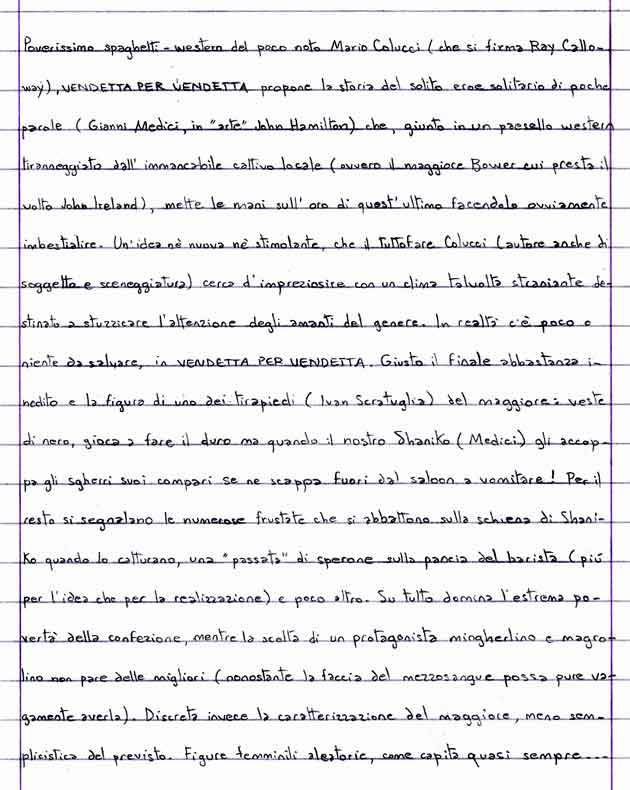 Poverissimo spaghetti-western del poco noto Mario Colucci (che si firma Ray Callo-
way), VENDETTA PER VENDETTA propone la storia del solito eroe solitario di poche
parole (Gianni Medici, in "arte" John Hamilton) che, giunto in un paesello western
tiranneggiato dall'immancabile cattivo locale (ovvero il maggiore Bower cui presta il
volto John Ireland), mette le mani sull'oro di quest'ultimo facendolo ovviamente
imbestialire. Un'idea nè nuova nè stimolante, che il tuttofare Colucci (autore anche di
soggetto e sceneggiatura) cerca d'impreziosire con un clima talvolta straniante de-
stinato a stuzzicare l'attenzione degli amanti del genere. In realtà c'è poco o
niente da salvare, in VENDETTA PER VENDETTA. Giusto il finale abbastanza i-
nedito e la figura di uno dei tirapiedi (Ivan Scratuglia) del maggiore: veste
di nero, gioca a fare il duro ma quando il nostro Shaniko (Medici) gli accop-
pa gli sgherri suoi compari se ne scappa fuori dal saloon a vomitare! Per il
resto si segnalano le numerose frustate che si abbattono sulla schiena di Shani-
ko quando lo catturano, una "passata" di sperone sulla pancia del barista (più
per l'idea che per la realizzazione) e poco altro. Su tutto domina l'estrema po-
vertà della confezione, mentre la scelta di un protagonista mingherlino e magro-
lino non pare delle migliori (nonostante la faccia del mezzosangue possa pure va-
gamente averla). Discreta invece la caratterizzazione del maggiore, meno sem-
plicistica del previsto. Figure femminili aleatorie, come capita quasi sempre...